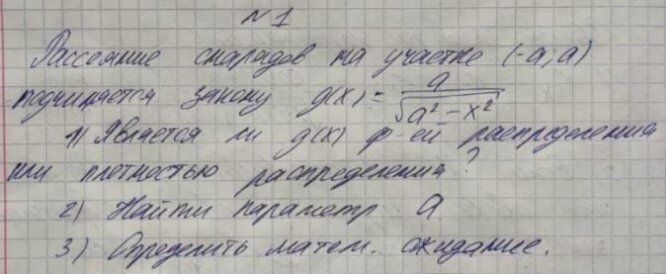 №1
Рассеяние снарядов на участке (-a; a)
подчиняется закону g(x) = a / √(a² - x²)
1) Является ли g(x) ф-ей распределения
или плотностью распределения?
2) Найти параметр a
3) Определить матем. ожидание.